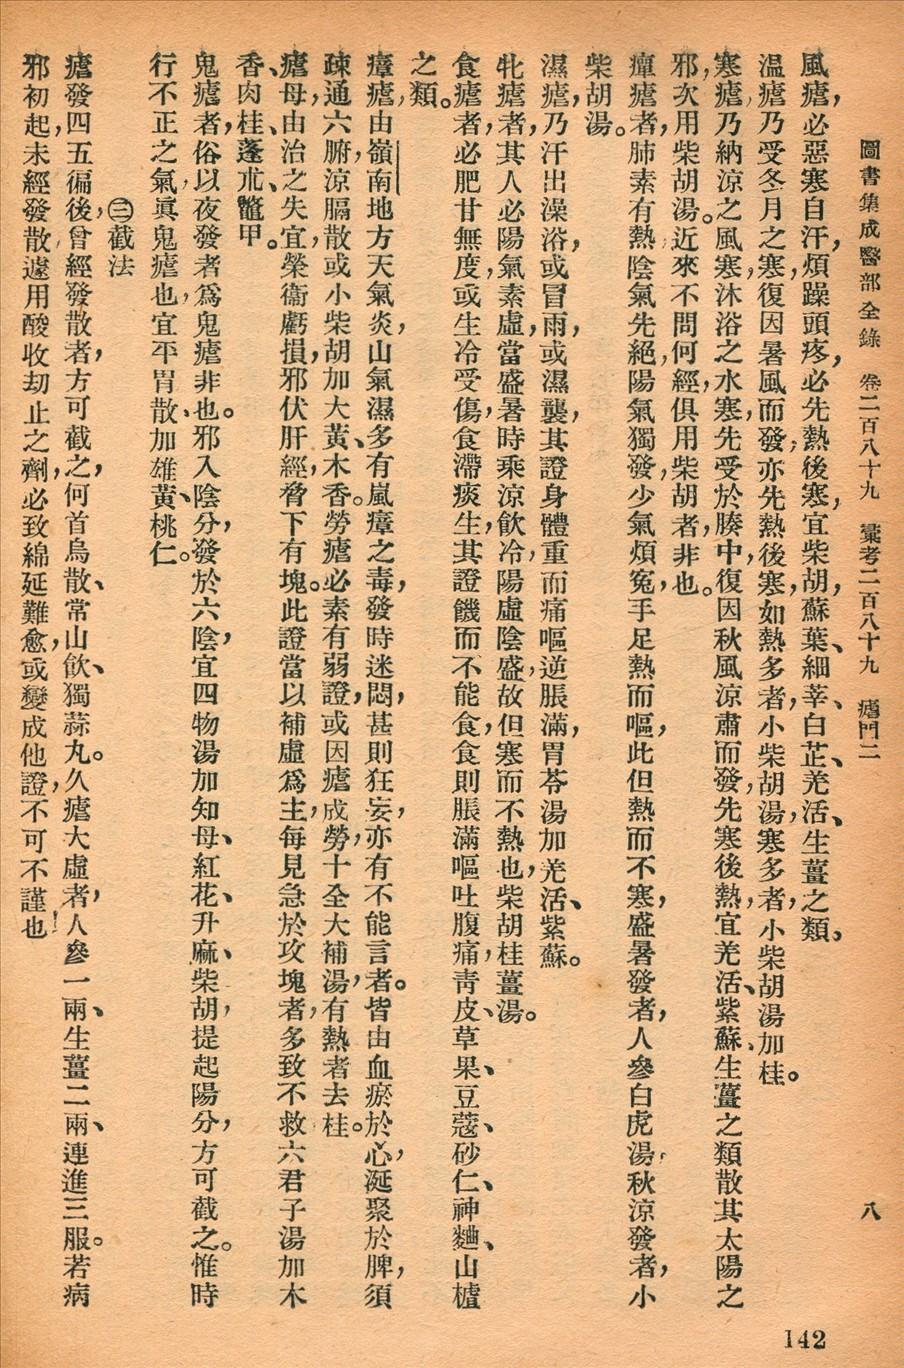 圖書集成醫部全錄　卷二百八十九　彙考二百八十九　瘧門二　八
風瘧，必惡寒自汗，煩躁頭疼，必先熱後寒，宜柴胡、蘇葉、細莘、白芷、羌活、生薑之類。
溫瘧乃受冬月之寒，復因暑風而發，亦先熱後寒，如熱多者，小柴胡湯，寒多者，小柴胡湯加桂。
寒瘧，乃納涼之風寒，沐浴之水寒，先受於腠中，復因秋風涼肅而發，先寒後熱，宜羌活、紫蘇、生薑之類散其太陽之
邪，次用柴胡湯。近來不問何經，俱用柴胡者，非也。
癉瘧者，肺素有熱，陰氣先絕，陽氣獨發，少氣煩寃，手足熱而嘔，此但熱而不寒，盛暑發者，人參白虎湯，秋涼發者，小
柴胡湯。
濕瘧，乃汗出澡浴，或冒雨，或濕襲，其證身體重而痛嘔逆脹滿，胃苓湯加羌活、紫蘇。
牝瘧者，其人必陽氣素虛，當盛暑時乘涼飲冷，陽虛陰盛，故但寒而不熱也，柴胡桂薑湯。
食瘧者，必肥甘無度，或生冷受傷，食滯痰生，其證饑而不能食，食則脹滿嘔吐腹痛，靑皮、草果、豆蔻、砂仁、神麯、山樝
之類。
瘴瘧，由嶺南地方天氣炎，山氣濕，多有嵐瘴之毒，發時迷悶，甚則狂妄，亦有不能言者。皆由血瘀於心，涎聚於脾，須
疎通六腑，涼膈散或小柴胡加大黃、木香。勞瘧必素有弱證，或因瘧成勞，十全大補湯，有熱者去桂。
瘧母，由治之失宜，榮衞虧損，邪伏肝經，脅下有塊。此證當以補虛爲主，每見急於攻塊者，多致不救，六君子湯加木
香、肉桂、蓬朮、鼈甲。
鬼瘧者，俗以夜發者爲鬼瘧非也。邪入陰分，發於六陰，宜四物湯加知母、紅花、升麻、柴胡，提起陽分，方可截之。惟時
行不正之氣，眞鬼瘧也，宜平胃散、加雄黃、桃仁。
㊂截法
瘧發四五徧後，曾經發散者，方可截之，何首烏散、常山飲、獨蒜丸。久瘧大虛者，人參一兩、生薑二兩、連進三服。若病
邪初起，未經發散，遽用酸收刧止之劑，必致綿延難愈，或變成他證，不可不謹也！
142